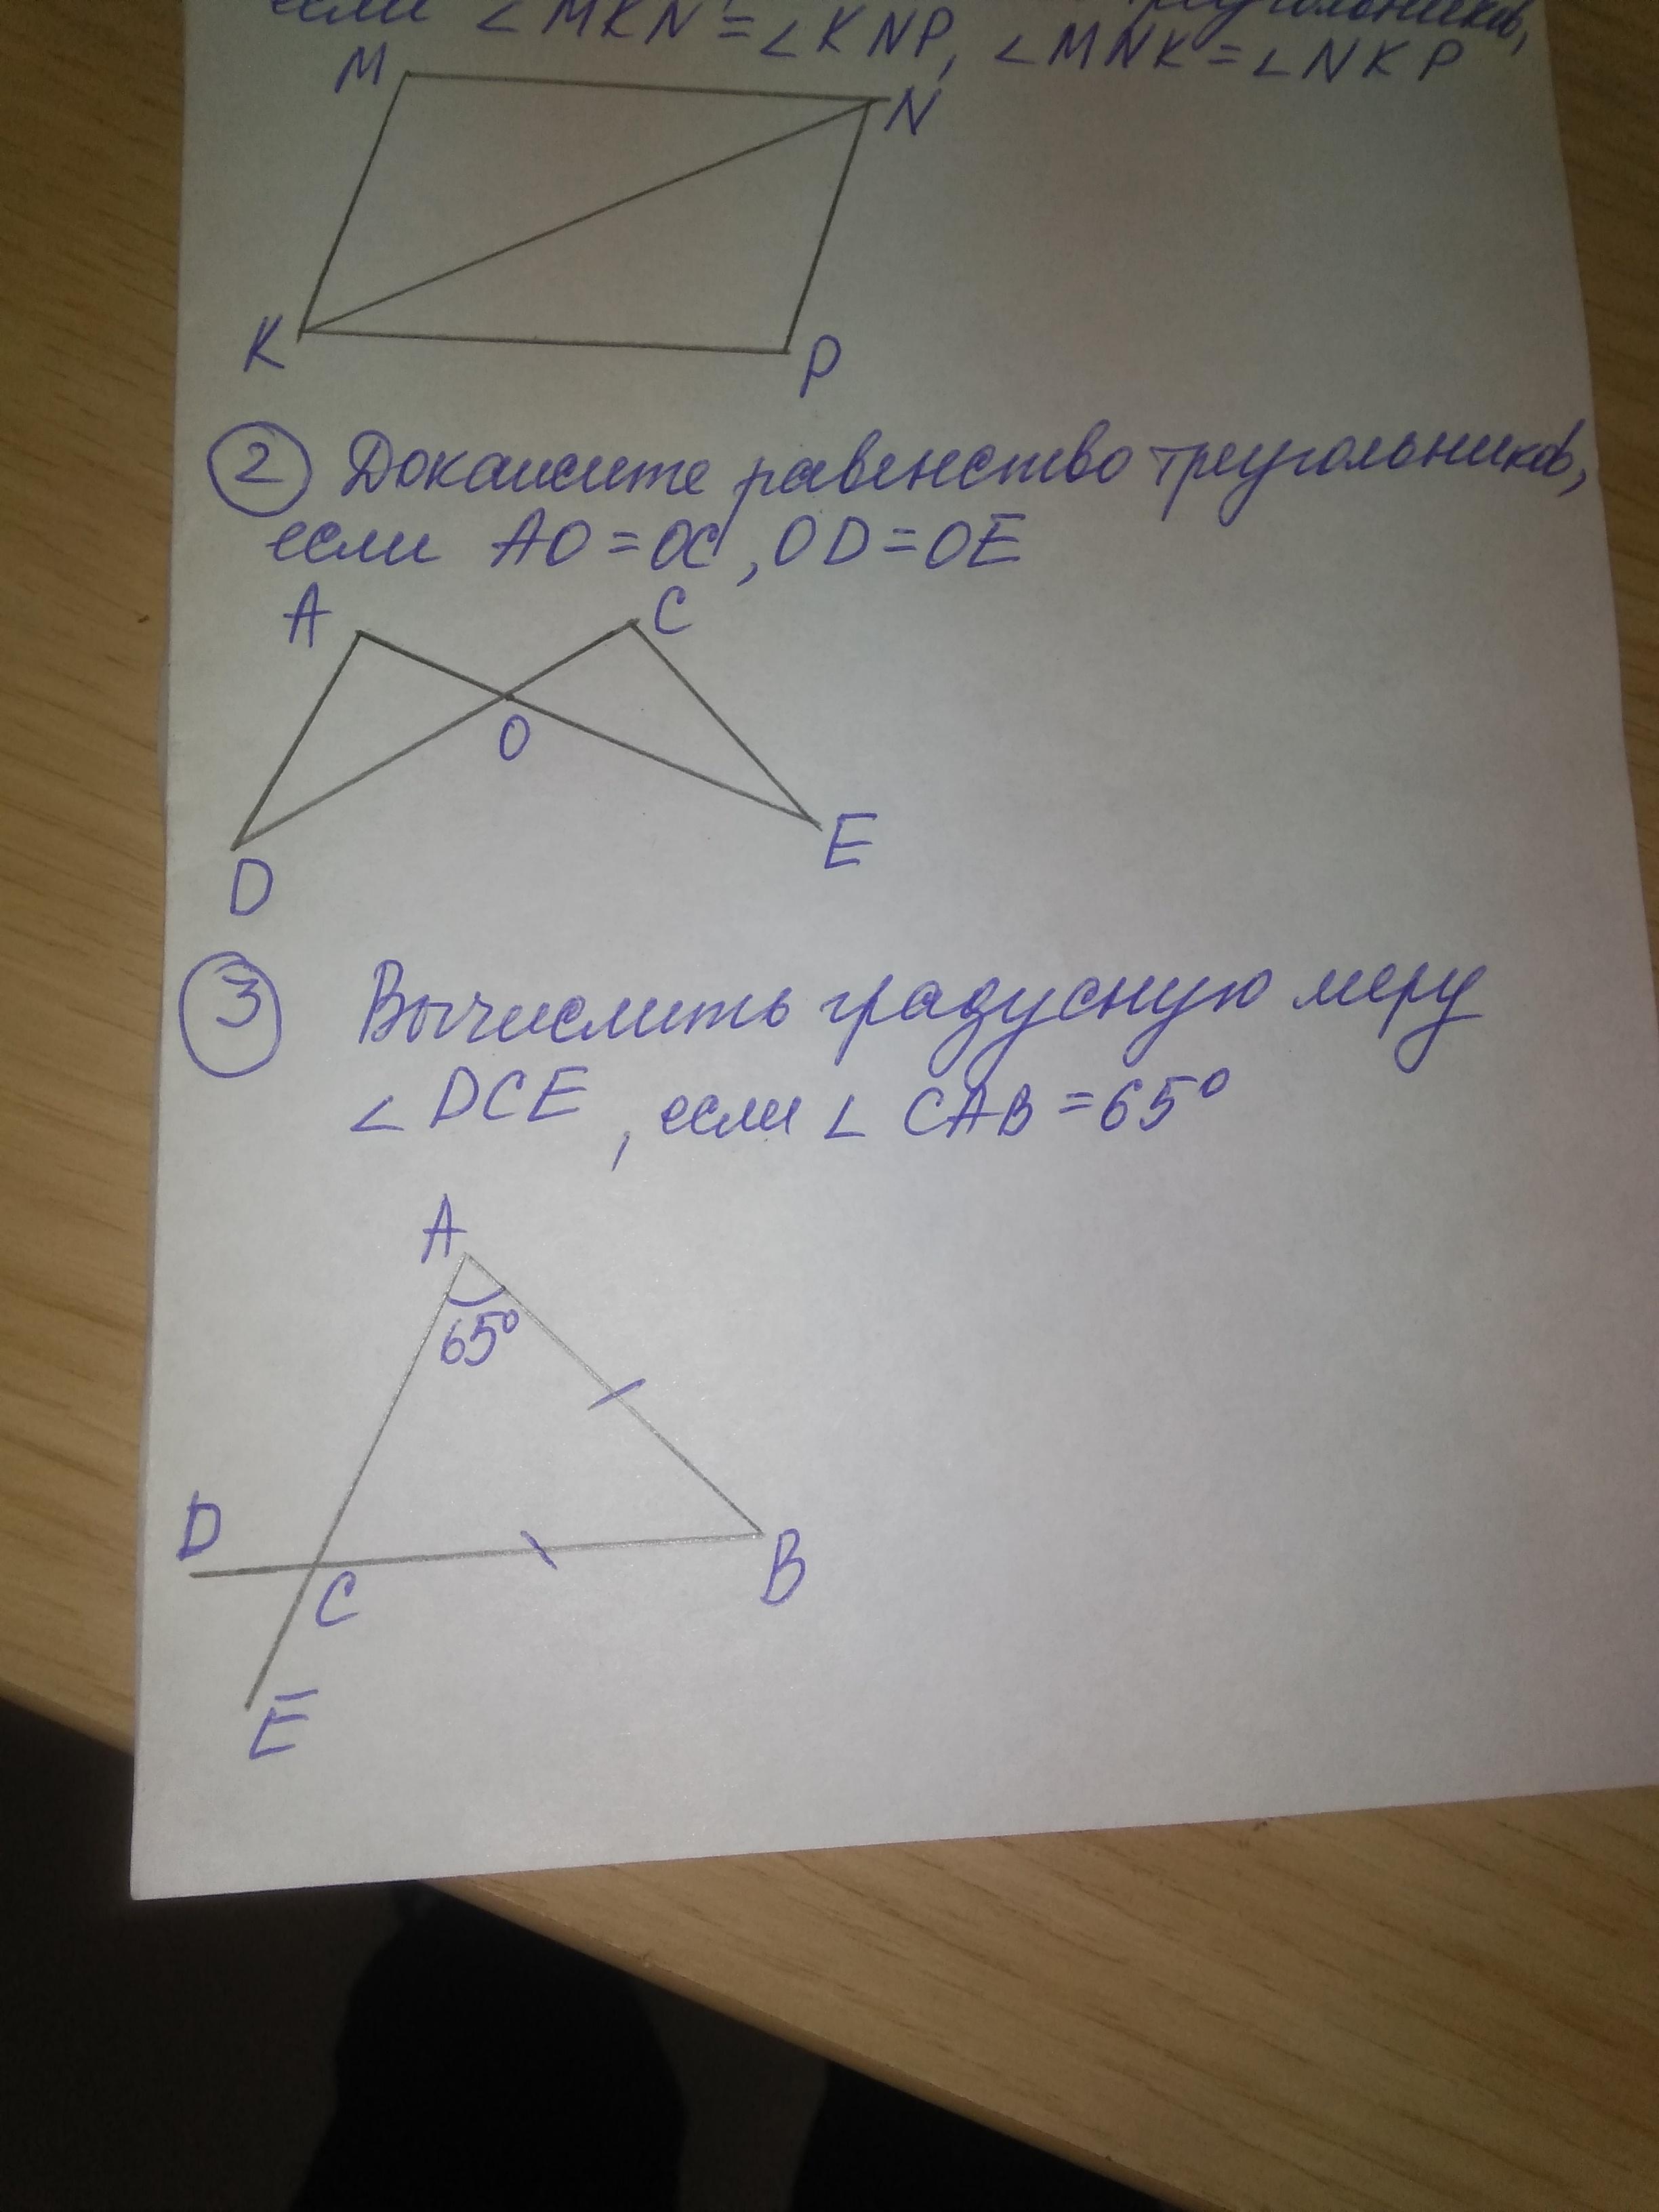 если ∠MKN = ∠KNP, ∠MNK = ∠NKP
M
N
K
P
2 Докажите равенство треугольников,
если AO = OC, OD = OE
A
C
O
D
E
3 Вычислить градусную меру
∠DCE, если ∠CAB = 65°
A
65°
D
C
B
E